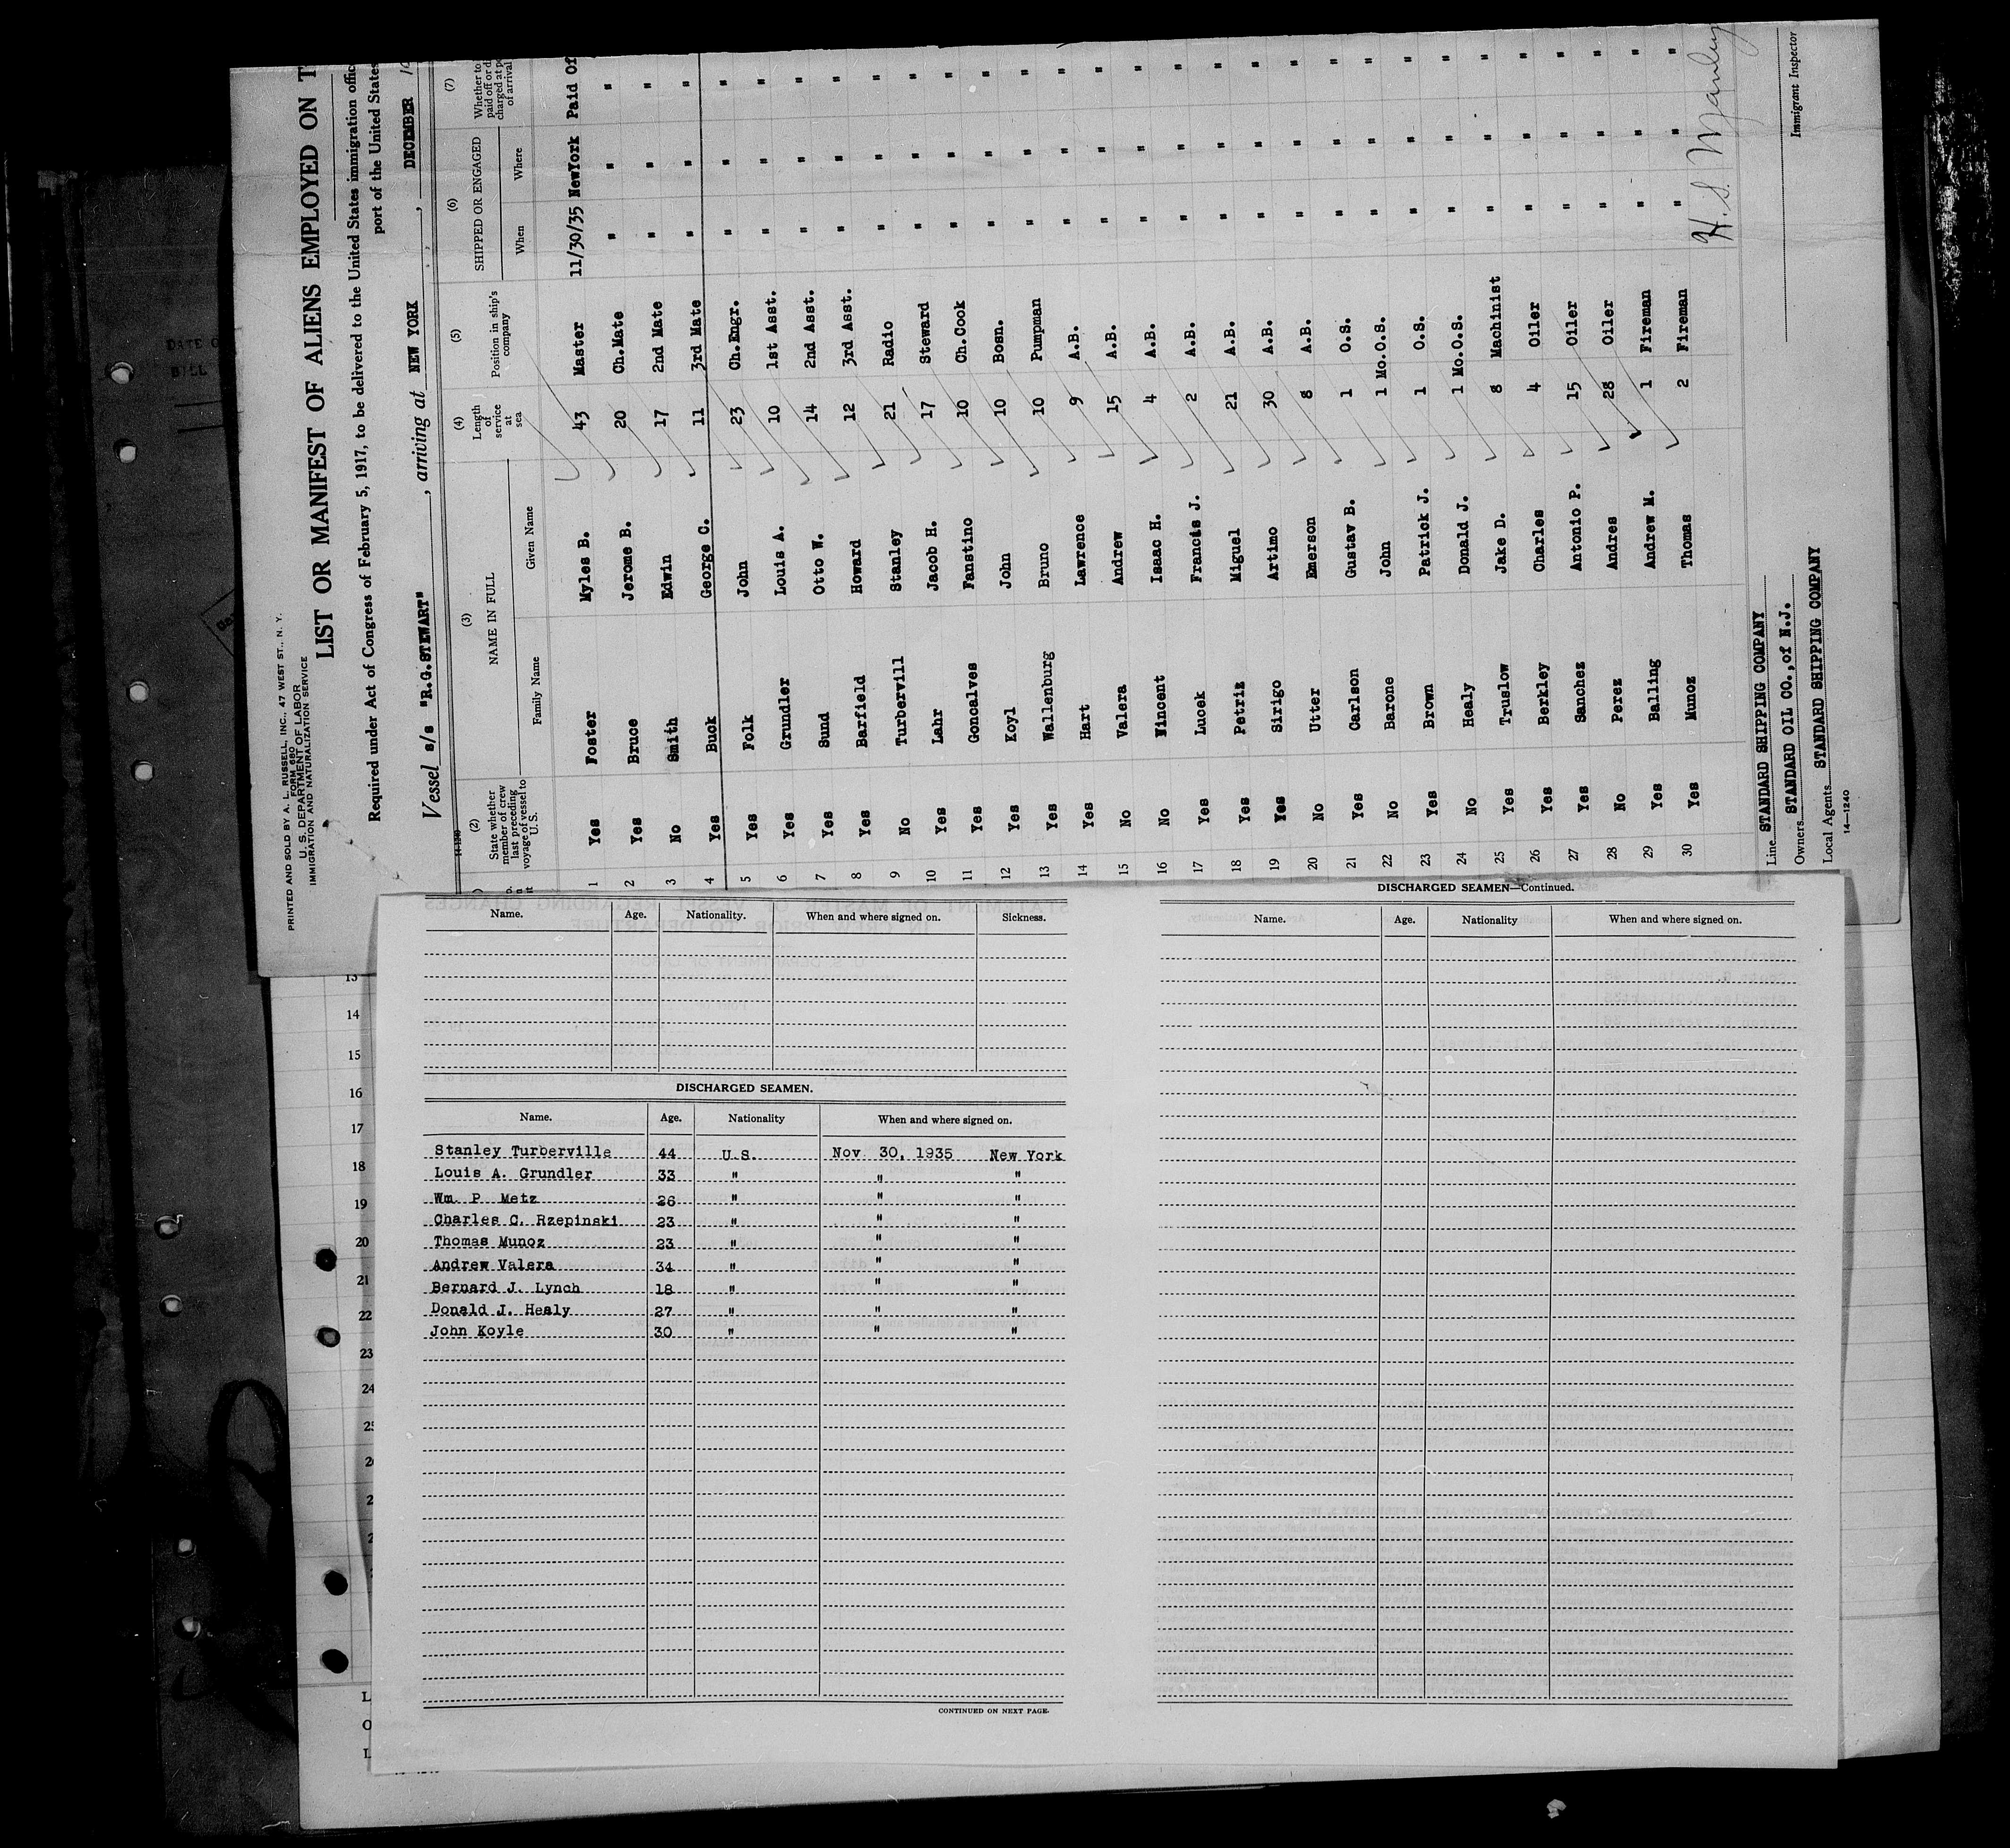 PRINTED AND SOLD BY A. L. RUSSELL, INC., 47 WEST ST., N. Y.
FORM 680
U. S. DEPARTMENT OF LABOR
IMMIGRATION AND NATURALIZATION SERVICE
LIST OR MANIFEST OF ALIENS EMPLOYED ON T
Required under Act of Congress of February 5, 1917, to be delivered to the United States immigration offic
port of the United States
Vessel s/s "R.G.STEWART" , arriving at NEW YORK , DECEMBER
14-1240
(2) (3) (4) (5) (6) (7)
State whether member of crew last preceding voyage of vessel to U.S. NAME IN FULL Length of service at sea Position in ship's company SHIPPED OR ENGAGED Whether to paid off or d charged at p of arrival
Family Name Given Name When Where
1 Yes Foster Myles B. 43 Master 11/30/35 NewYork Paid Of
2 Yes Bruce Jerome B. 20 Ch.Mate " " "
3 No Smith Edwin 17 2nd Mate " " "
4 Yes Buck George C. 11 3rd Mate " " "
5 Yes Folk John 23 Ch.Engr. " " "
6 Yes Grundler Louis A. 10 1st Asst. " " "
7 Yes Sund Otto W. 14 2nd Asst. " " "
8 Yes Barfield Howard 12 3rd Asst. " " "
9 No Turbervill Stanley 21 Radio " " "
10 Yes Lahr Jacob H. 17 Steward " " "
11 Yes Goncalves Fanstino 10 Ch.Cook " " "
12 Yes Koyl John 10 Bosn. " " "
13 Yes Wallenburg Bruno 10 Pumpman " " "
14 Yes Hart Lawrence 9 A.B. " " "
15 No Valera Andrew 15 A.B. " " "
16 No Wincent Isaac H. 4 A.B. " " "
17 Yes Lucek Francis J. 2 A.B. " " "
18 Yes Petriz Miguel 21 A.B. " " "
19 Yes Sirigo Artimo 30 A.B. " " "
20 No Utter Emerson 8 A.B. " " "
21 Yes Carlson Gustav B. 1 O.S. " " "
22 No Barone John 1 Mo.O.S. " " "
23 Yes Brown Patrick J. 1 O.S. " " "
24 No Healy Donald J. 1 Mo.O.S. " " "
25 Yes Truslow Jake D. 8 Machinist " " "
26 Yes Berkley Charles 4 Oiler " " "
27 Yes Sanchez Antonio P. 15 Oiler " " "
28 No Perez Andres 28 Oiler " " "
29 Yes Balling Andrew M. 1 Fireman " " "
30 Yes Munoz Thomas 2 Fireman " " "
Line STANDARD SHIPPING COMPANY
Owners STANDARD OIL CO.,of N.J.
Local Agents STANDARD SHIPPING COMPANY
Immigrant Inspector
14—1240
DATE O
BILL
Name. Age. Nationality. When and where signed on. Sickness.
DISCHARGED SEAMEN.
Name. Age. Nationality When and where signed on.
Stanley Turberville 44 U.S. Nov 30, 1935 New York
Louis A. Grundler 33 " " "
Wm. P Metz 26 " " "
Charles C. Rzepinski 23 " " "
Thomas Munoz 23 " " "
Andrew Valera 34 " " "
Bernard J. Lynch 18 " " "
Donald J. Healy 27 " " "
John Koyle 30 " " "
CONTINUED ON NEXT PAGE.
DISCHARGED SEAMEN—Continued.
Name. Age. Nationality When and where signed on.
13
14
15
16
17
18
19
20
21
22
23
24